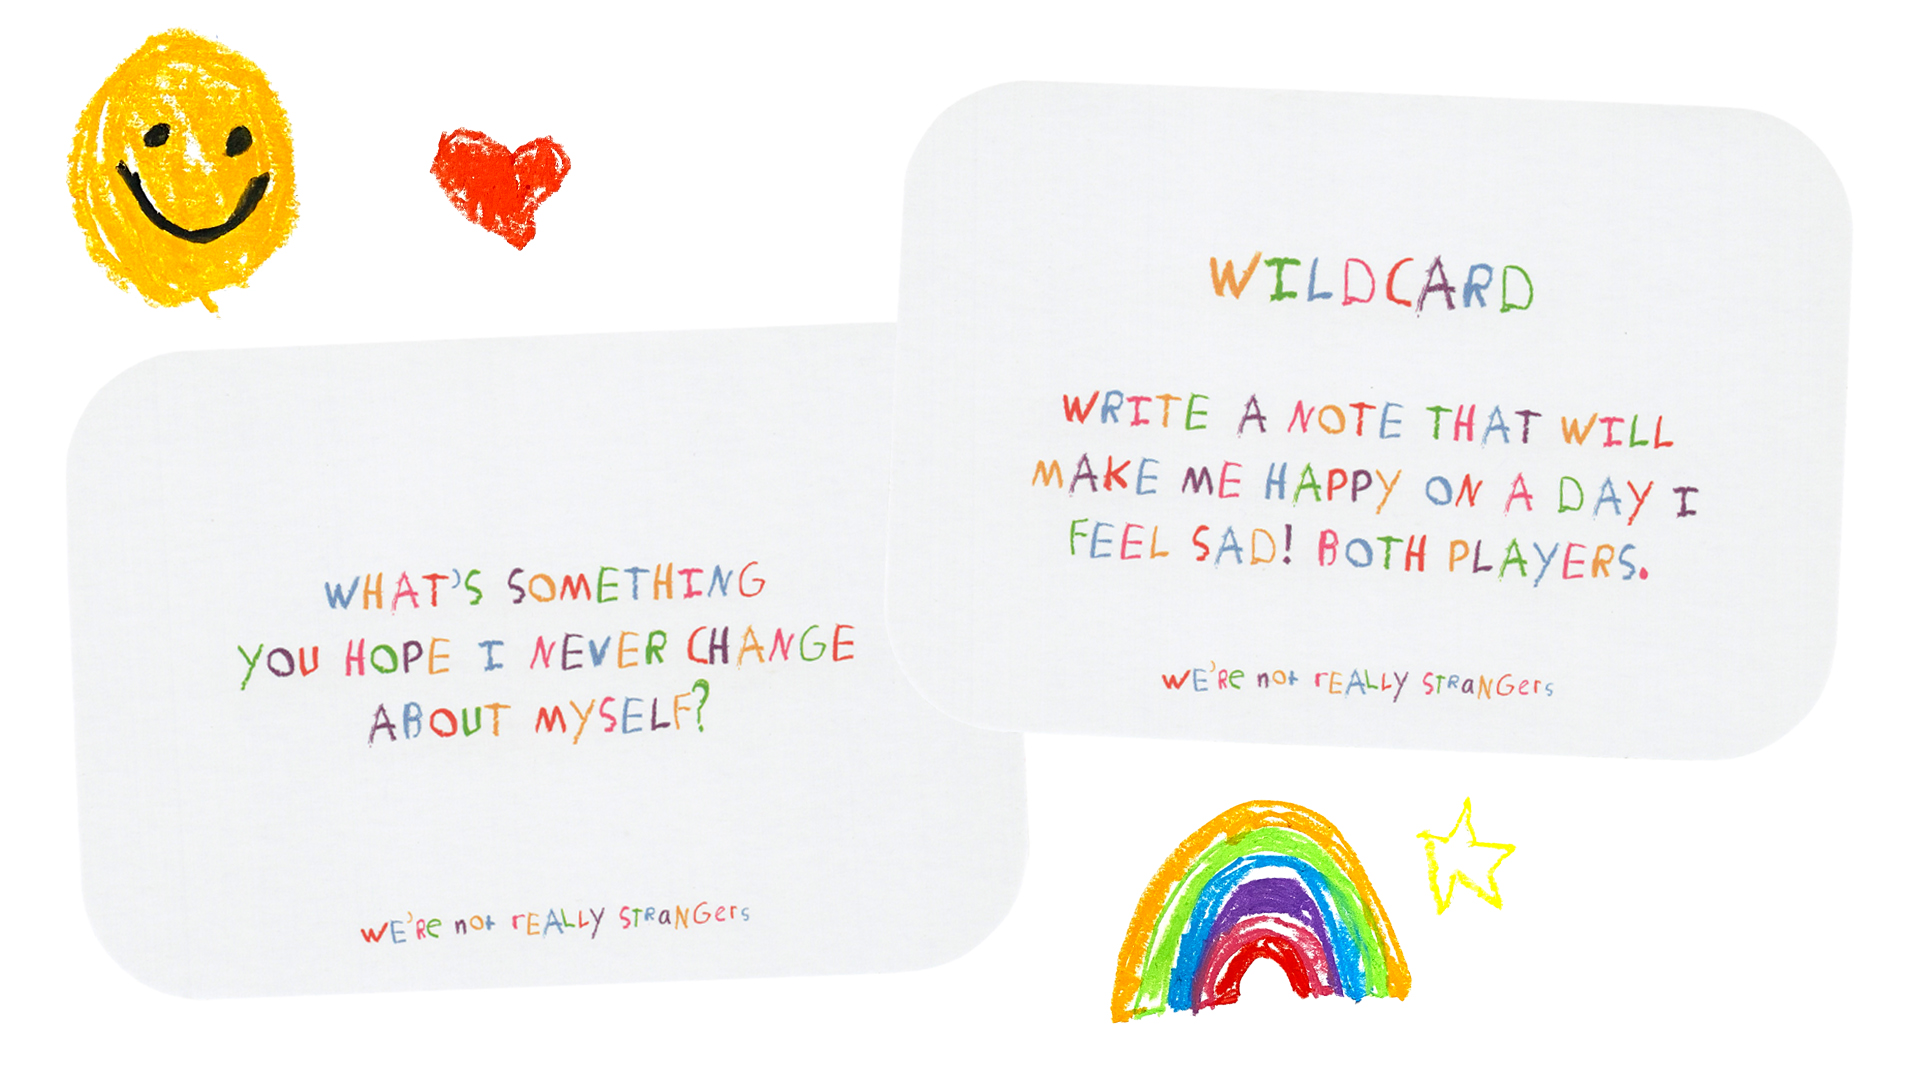 WHAT'S SOMETHING
YOU HOPE I NEVER CHANGE
ABOUT MYSELF?
WE'Re not rEALLY STRaNGers
WILDCARD
WRITE A NOTE THAT WILL
MAKE ME HAPPY ON A DAY I
FEEL SAD! BOTH PLAYERS.
WE'Re not rEALLY STRaNGers